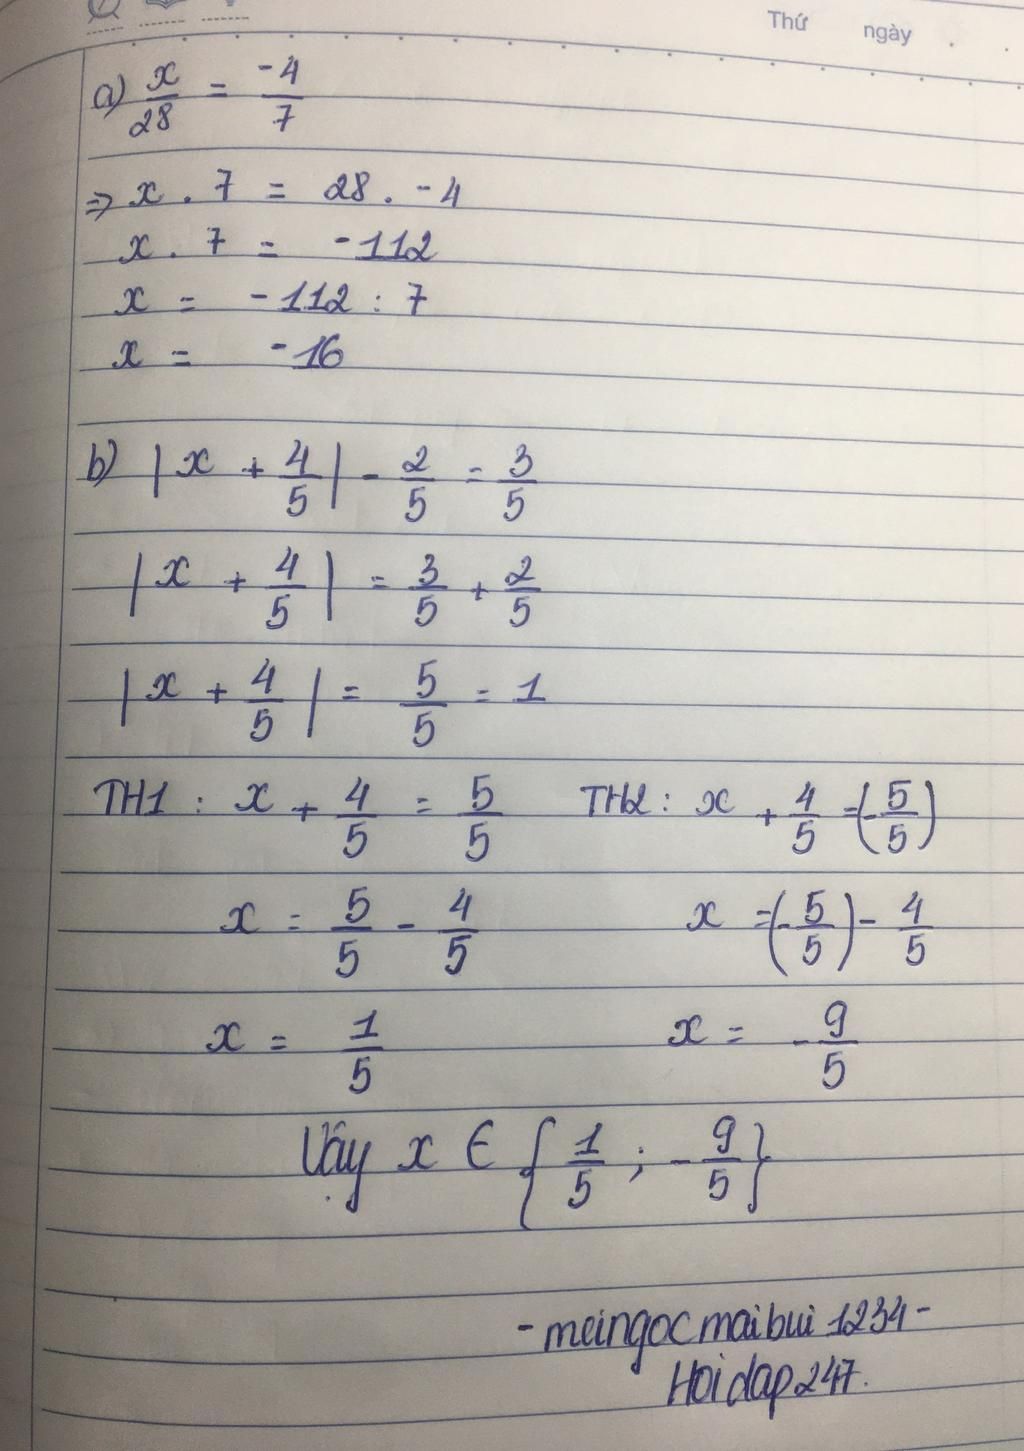 Thứ ngày
a) x/28 = -4/7
⇒ x . 7 = 28 . -4
x . 7 = -112
x = -112 : 7
x = -16
b) |x + 4/5| - 2/5 = 3/5
|x + 4/5| = 3/5 + 2/5
|x + 4/5| = 5/5 = 1
TH1 : x + 4/5 = 5/5 TH2 : x + 4/5 = (-5/5)
x = 5/5 - 4/5 x = (-5/5) - 4/5
x = 1/5 x = -9/5
Vậy x ∈ {1/5 ; -9/5}
- meingocmaibui1234 -
Hoidap247.